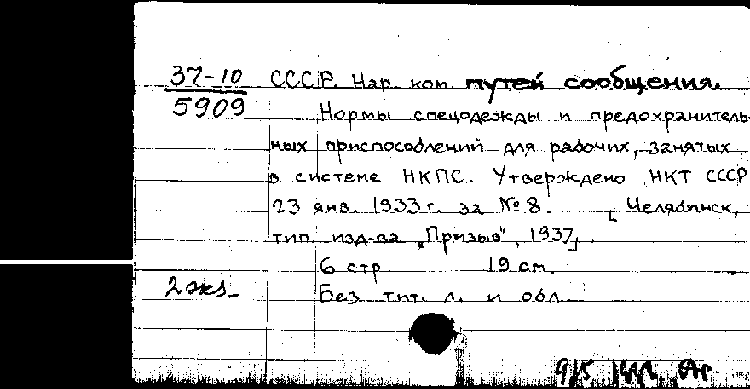 37-10
5909
СССР. Нар. ком. путей сообщения.
Нормы спецодежды и предохранитель-
ных приспособлений для рабочих, занятых
в системе НКПС. Утверждено НКТ СССР
23 янв. 1933 г. за № 8. [Челябинск,
тип. изд-ва „Призыв", 1937].
6 стр. 19 см.
2 экз.
Без тит. л. и обл.